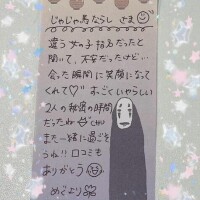 じゃじゃ馬ならし さま
違う女の子指名だったと
聞いて、不安だったけど…
会った瞬間に笑顔になって
くれて♡ すごくいやらしい
2人の秘密の時間
だったね chu
また一緒に過ごそ
うね!! 口コミも
ありがとう
めぐより